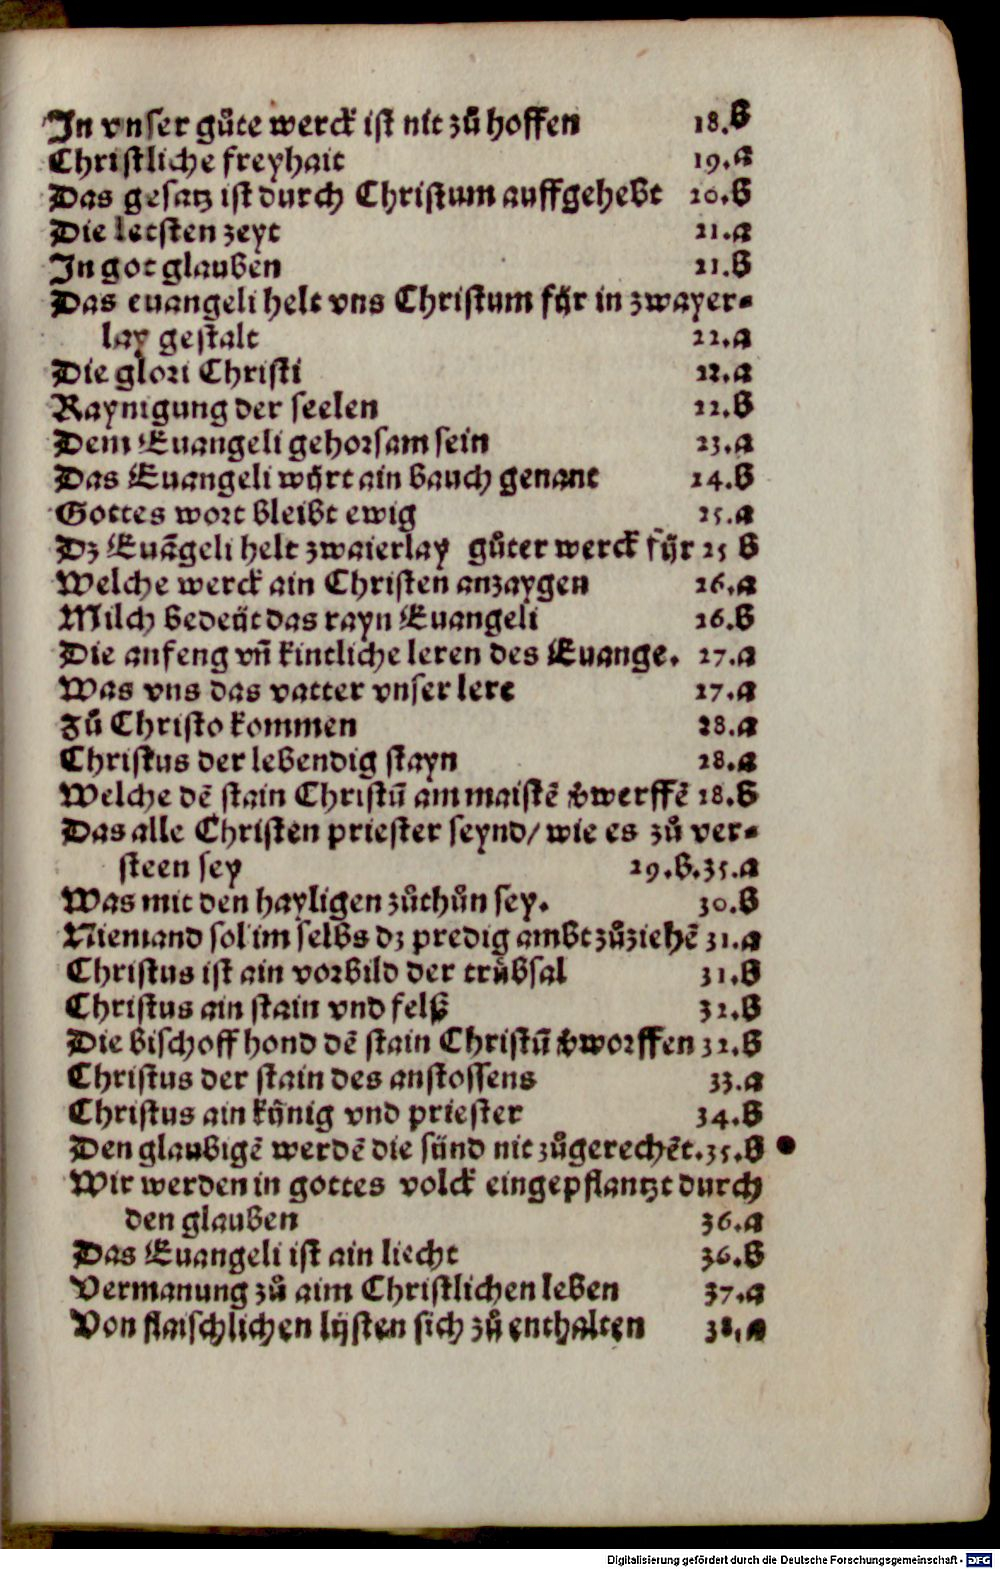 In vnser gůte werck ist nit zů hoffen 18.b
Christliche freyhait 19.a
Das gesatz ist durch Christum auffgehebt 20.b
Die letsten zeyt 21.a
In got glauben 21.b
Das euangeli helt vns Christum für in zwayer⸗
lay gestalt 22.a
Die glori Christi 22.a
Raynigung der seelen 22.b
Dem Euangeli gehorsam sein 23.a
Das Euangeli würt ain bauch genant 24.b
Gottes wort bleibt ewig 25.a
Dz Euãgeli helt zwaierlay gůter werck für 25 b
Welche werck ain Christen anzaygen 26.a
Milch bedeüt das rayn Euangeli 26.b
Die anfeng vñ kintliche leren des Euange. 27.a
Was vns das vatter vnser lere 27.a
Zů Christo kommen 28.a
Christus der lebendig stayn 28.a
Welche dē stain Christū am maistē v̄werffē 28.b
Das alle Christen priester seynd/ wie es zů ver⸗
steen sey 29.b.35.a
Was mit den hayligen zůthůn sey. 30.b
Niemand sol im selbs dz predig ambt zůziehē 31.a
Christus ist ain vorbild der trübsal 31.b
Christus ain stain vnd felß 32.b
Die bischoff hond dē stain Christū v̄worffen 32.b
Christus der stain des anstossens 33.a
Christus ain künig vnd priester 34.b
Den glaubigē werdē die sünd nit zůgerechēt. 35.b
Wir werden in gottes volck eingepflantzt durch
den glauben 36.a
Das Euangeli ist ain liecht 36.b
Vermanung zů aim Christlichen leben 37.a
Von flaischlichen lüsten sich zů enthalten 38.a
Digitalisierung gefördert durch die Deutsche Forschungsgemeinschaft - DFG